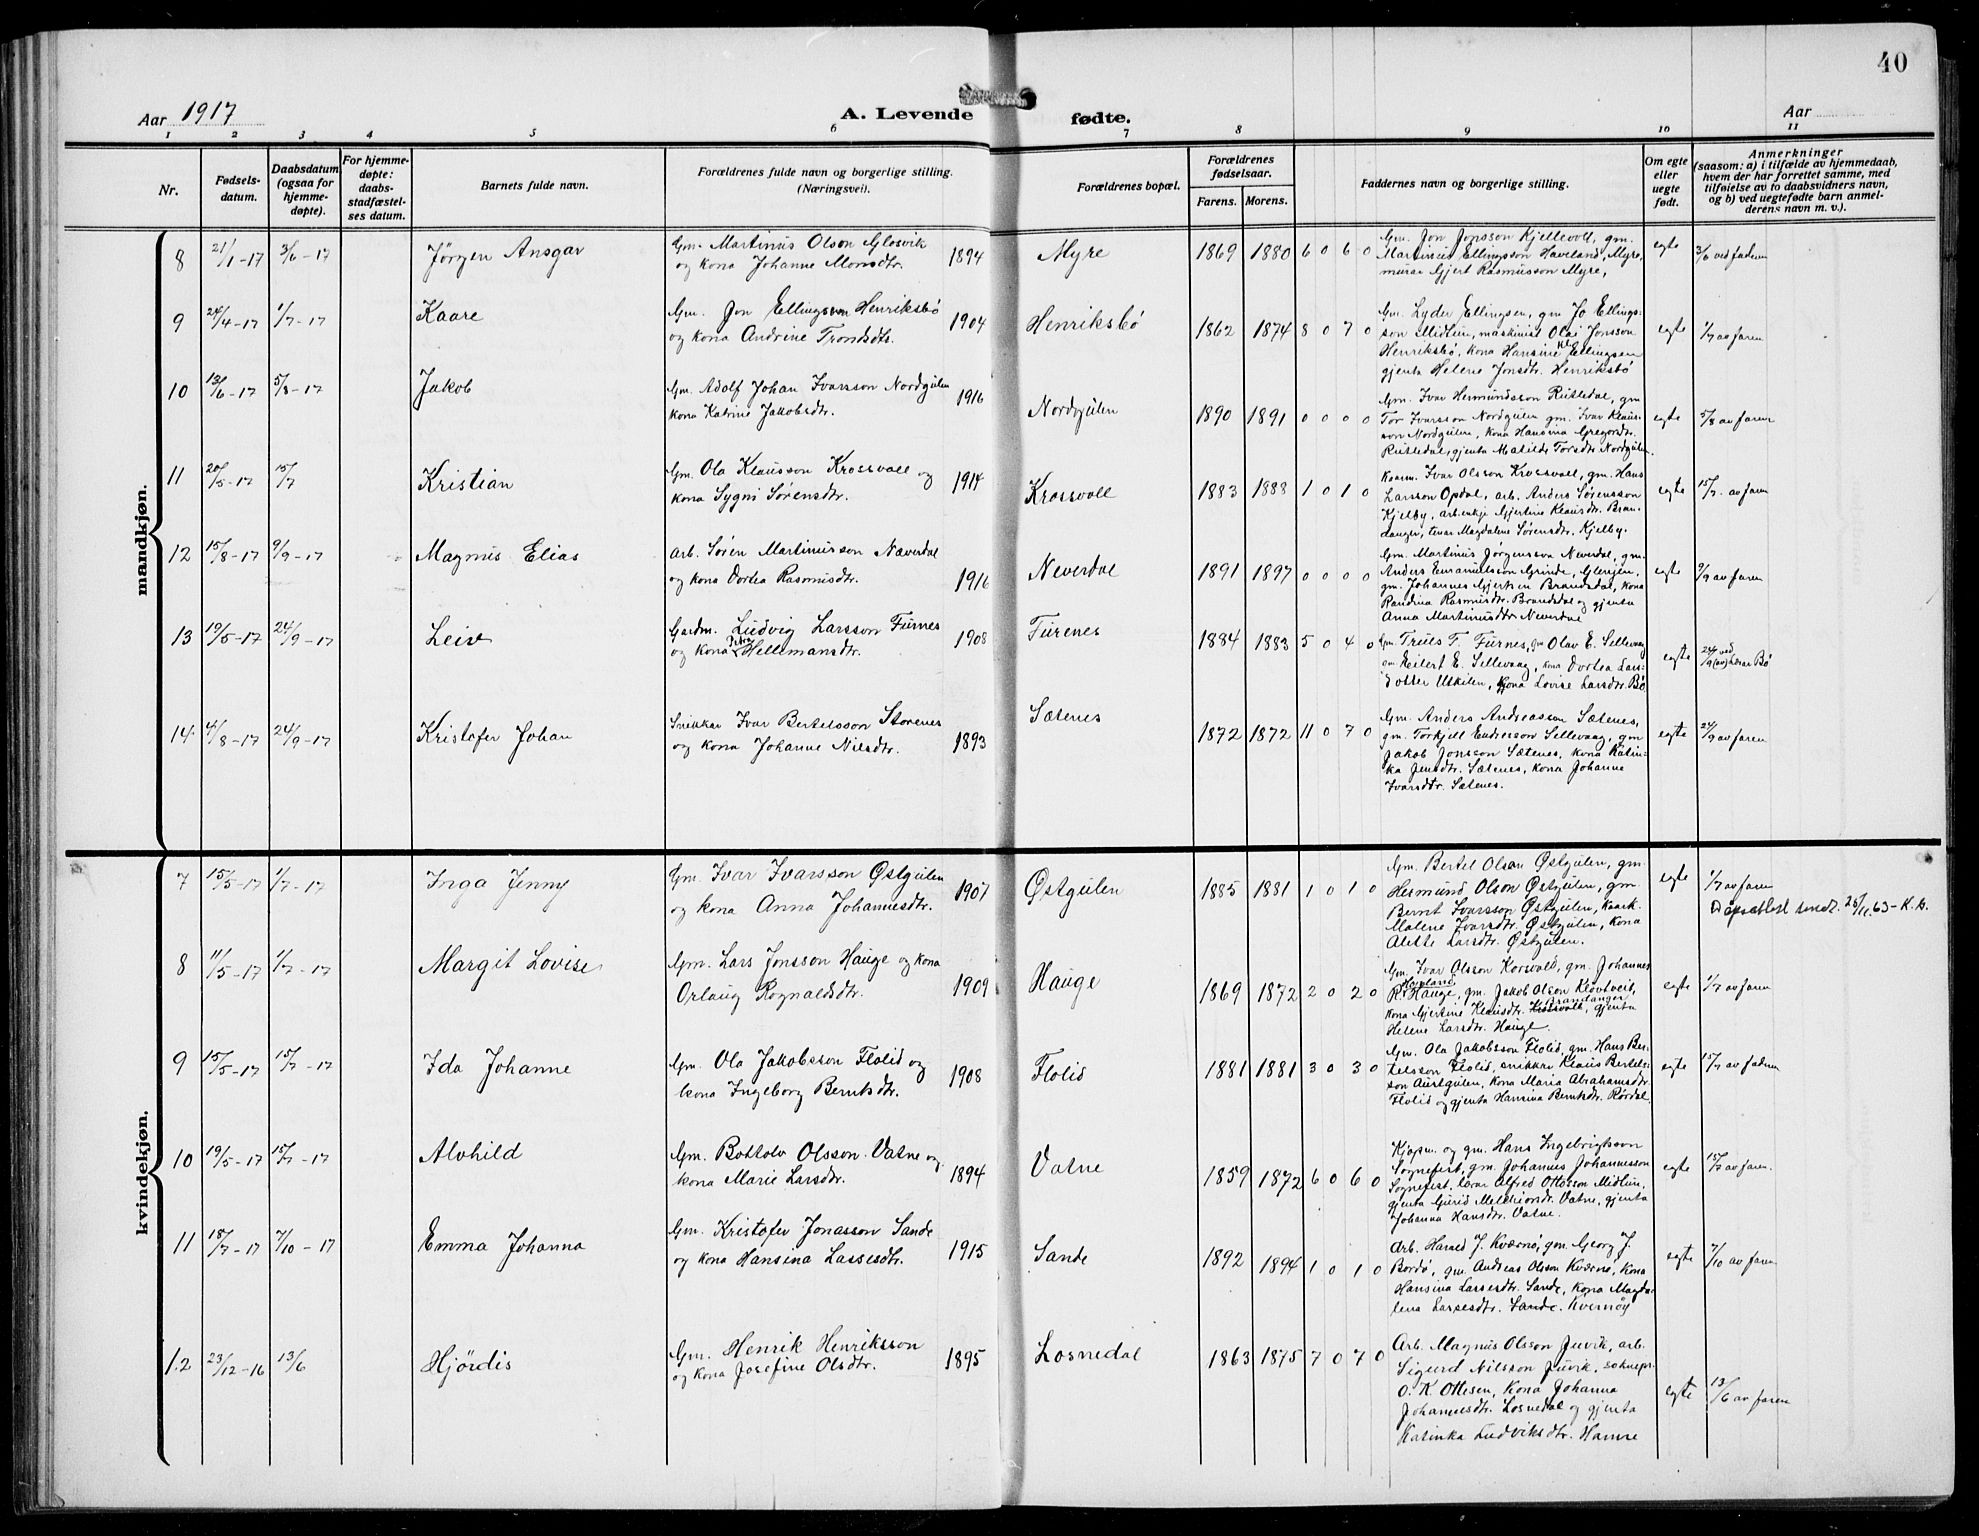 40
Aar 1917
A. Levende fødte.
Aar
1 2 3 4 5 6 7 8 9 10 11
Nr.
Fødsels-
datum.
Daabsdatum
(ogsaa for
hjemme-
døpte).
For hjemme-
døpte:
daabs-
stadfæstel-
ses datum.
Barnets fulde navn.
Forældrenes fulde navn og borgerlige stilling.
(Næringsvei).
Forældrenes bopæl.
Forældrenes
fødselsaar.
Farens. Morens.
Faddernes navn og borgerlige stilling.
Om egte
eller
uegte
født.
Anmerkninger
(saasom: a) i tilfælde av hjemmedaab,
hvem der har forrettet samme, med
tilføielse av to daabsvidners navn,
og b) ved uegtefødte barn anmel-
derens navn m. v.).
mandkjøn.
8 21/1-17 3/6-17 Jörgen Ansgar
Gm. Martinus Olson Glosvik
og kona Johanne Monsdtr. 1894
Myre 1869 1880 6 0 6 0
Gm. Jon Jonsson Kjellevoll, gm.
Martinius Ellingsson Haveland, Myre,
murar Gjert Rasmusson Myre,
egte 3/6 ved faderen
9 24/4-17 1/7-17 Kaare
Gm. Jon Ellingson Henriksbø
og kona Andrine Trondsdtr. 1904
Henriksbø 1862 1874 8 0 7 0
Gm. Lyder Ellingsen, gm Jo Ellings-
son Midtun, maskinist Olai Jonsson
Henriksbø, kona Hansine Ellingsen
gjenta Helene Jonsdtr. Henriksbø
egte 1/7 av faren
10 13/6-17 5/8-17 Jakob
Gm. Adolf Johan Ivarsson Nordgulen
kona Katrine Jakobsdtr. 1916
Nordgulen 1890 1891 0 0 0 0
Gm. Ivar Hermundsson Risledal, gm
Tor Ivarsson Nordgulen gm. Ivar Klaus-
son Nordgulen, kona Hansina Gregorsdtr.
Risledal, gjenta Matilde Torsdtr Nordgulen.
egte 5/8 av faren
11 20/5-17 15/7 Kristian
Gm. Ola Klausson Krossvoll og
kona Sygni Sørensdtr. 1914
Krossvoll 1883 1888 1 0 1 0
Kaarm. Ivar Olsson Krossvoll, gm. Hans
Larsson Opdal, arb. Anders Sørensson
Kjelby, arb.enkje Gjertine Klausdtr. Bran-
danger, tenar Magdalene Sørensdtr. Kjelby.
egte 15/7. av faren
12 15/8-17 9/9-17 Magnus Elias
Arb. Søren Martinusson Næverdal
og kona Dortea Rasmusdtr. 1916
Neverdal 1891 1897 0 0 0 0
Gm. Martinus Jørgensson Neverdal, gm.
Anders Emanuelsson Grinde, Glenjen,
gm. Johannes Gjertsen Brandsdal, kona
Randina Rasmusdtr. Brandsdal og gjenta
Anna Martinusdtr Neverdal
egte 9/9 av faren
13 19/5-17 24/9-17 Leiv
Gardm. Ludvig Larsson Furnes
og kona Petra Hellemansdtr. 1908
Furenes 1884 1883 5 0 4 0
Gm. Truls T. Furnes, gm Olav E. Sellevaag
gm. Eilert E. Sellevaag, kona Dortea Lars-
dotter Utkilen, kona Lovise Larsdtr. Bø
egte 24/9 (av) ved Bø
14. 4/8-17 24/9-17 Kristofer Johan
Snikkar Ivar Bertelsson Storenes
og kona Johanne Nilsdtr. 1893
Sætenes 1872 1872 11 0 7 0
Gm. Anders Andreasson Sætenes,
gm. Torkjell Endresson Sellevaag, gm
Jakob Jonsson Sætenes, kona Katin-
ka Jensdtr. Sætenes, kona Johanne
Ivarsdtr. Sætenes.
egte 24/9 av faren
kvindekjøn.
7 15/5-17 1/7-17 Inga Jenny
Gm. Ivar Ivarsson Østgulen
og kona Anna Johannesdtr. 1907
Østgulen 1885 1881 1 0 1 0
Gm. Bertel Olson Østgulen, gm.
Hermund Olson Østgulen, gm.
Bernt Ivarsson Østgulen, kaark.
Malene Ivarsdtr. Østgulen, kona
Alette Larsdtr. Østgulen.
egte 1/7 av faren
Dåpsattest sendt. 25/11.63-K.B.
8 11/5-17 1/7-17 Margit Lovise
Gm. Lars Jonsson Hauge og kona
Orlaug Rognaldsdtr. 1909
Hauge 1869 1872 2 0 2 0
Gm. Ivar Olsson Korsvold, gm. Johannes
R. Hauge, gm. Jakob Olson Kløvtveit,
kona Gjertine Klausdtr. Krossvoll Brandanger, gjenta
Helene Larsdtr. Hauge.
egte 1/7 av faren
9 15/5-17 15/7-17 Ida Johanne
Gm. Ola Jakobsson Flolid og
kona Ingeborg Berntsdtr. 1908
Flolid 1881 1881 3 0 3 0
Gm. Ola Jakobsson Flolid, gm. Hans Ber-
telsson Flolid, snikkar Klaus Bertels-
son Austgulen, kona Maria Abrahamsdtr.
Flolid og gjenta Hansina Berntsdtr. Rørdal.
egte 15/7 av faderen
10 19/5-17 15/7-17 Alvhild
Gm. Bottolv Olsson Vatne og
kona Marie Larsdtr. 1894
Vatne 1859 1872 6 0 6 0
Kjøpm. og gm. Hans Ingebrigtsson
Sognefest, gm. Johannes Johannesson
Sognefest. Alfred Ottosson Midtun,
gjenta Gurid Melchiorsdr. Vatne, gjenta
Johanna Hansdtr. Vatne.
egte 15/7 av faren.
11 18/7-17 7/10-17 Emma Johanna
Gm. Kristofer Jonasson Sande
og kona Hansina Lassesdtr. 1915
Sande 1892 1894 1 0 1 0
Arb. Harald J. Kværnø, gm. Georg J.
Bordø, gm. Andreas Olson Kværnø, kona
Hansina Larsesdtr. Sande, kona Magda-
lena Larsesdtr. Sande. Kvernøy
egte 7/10 av faren
12 23/12-16 13/6 Hjördis
Gm. Henrik Henriksson
og kona Josefine Olsdtr. 1895
Losnedal 1863 1875 7 0 7 0
Arb. Magnus Olsson Juvik, arb.
Sigurd Nilsson Juvik, soknepr.
O. K. Ottesen, kona Johanna
Johannesdtr. Losnedal og gjenta
Katinka Ludviksdtr. Hamre
egte 13/6 av faren